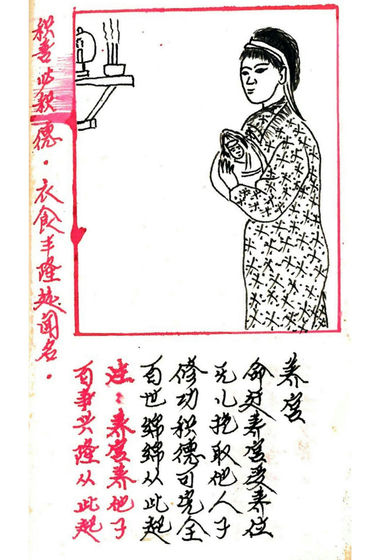 养宫
命交养宫受养位
无儿抱取他人子
修功积德可完全
百世绵绵从此起
注：养宫养他子
百事兴隆从此起
积善以积德。衣食丰隆越闻名。